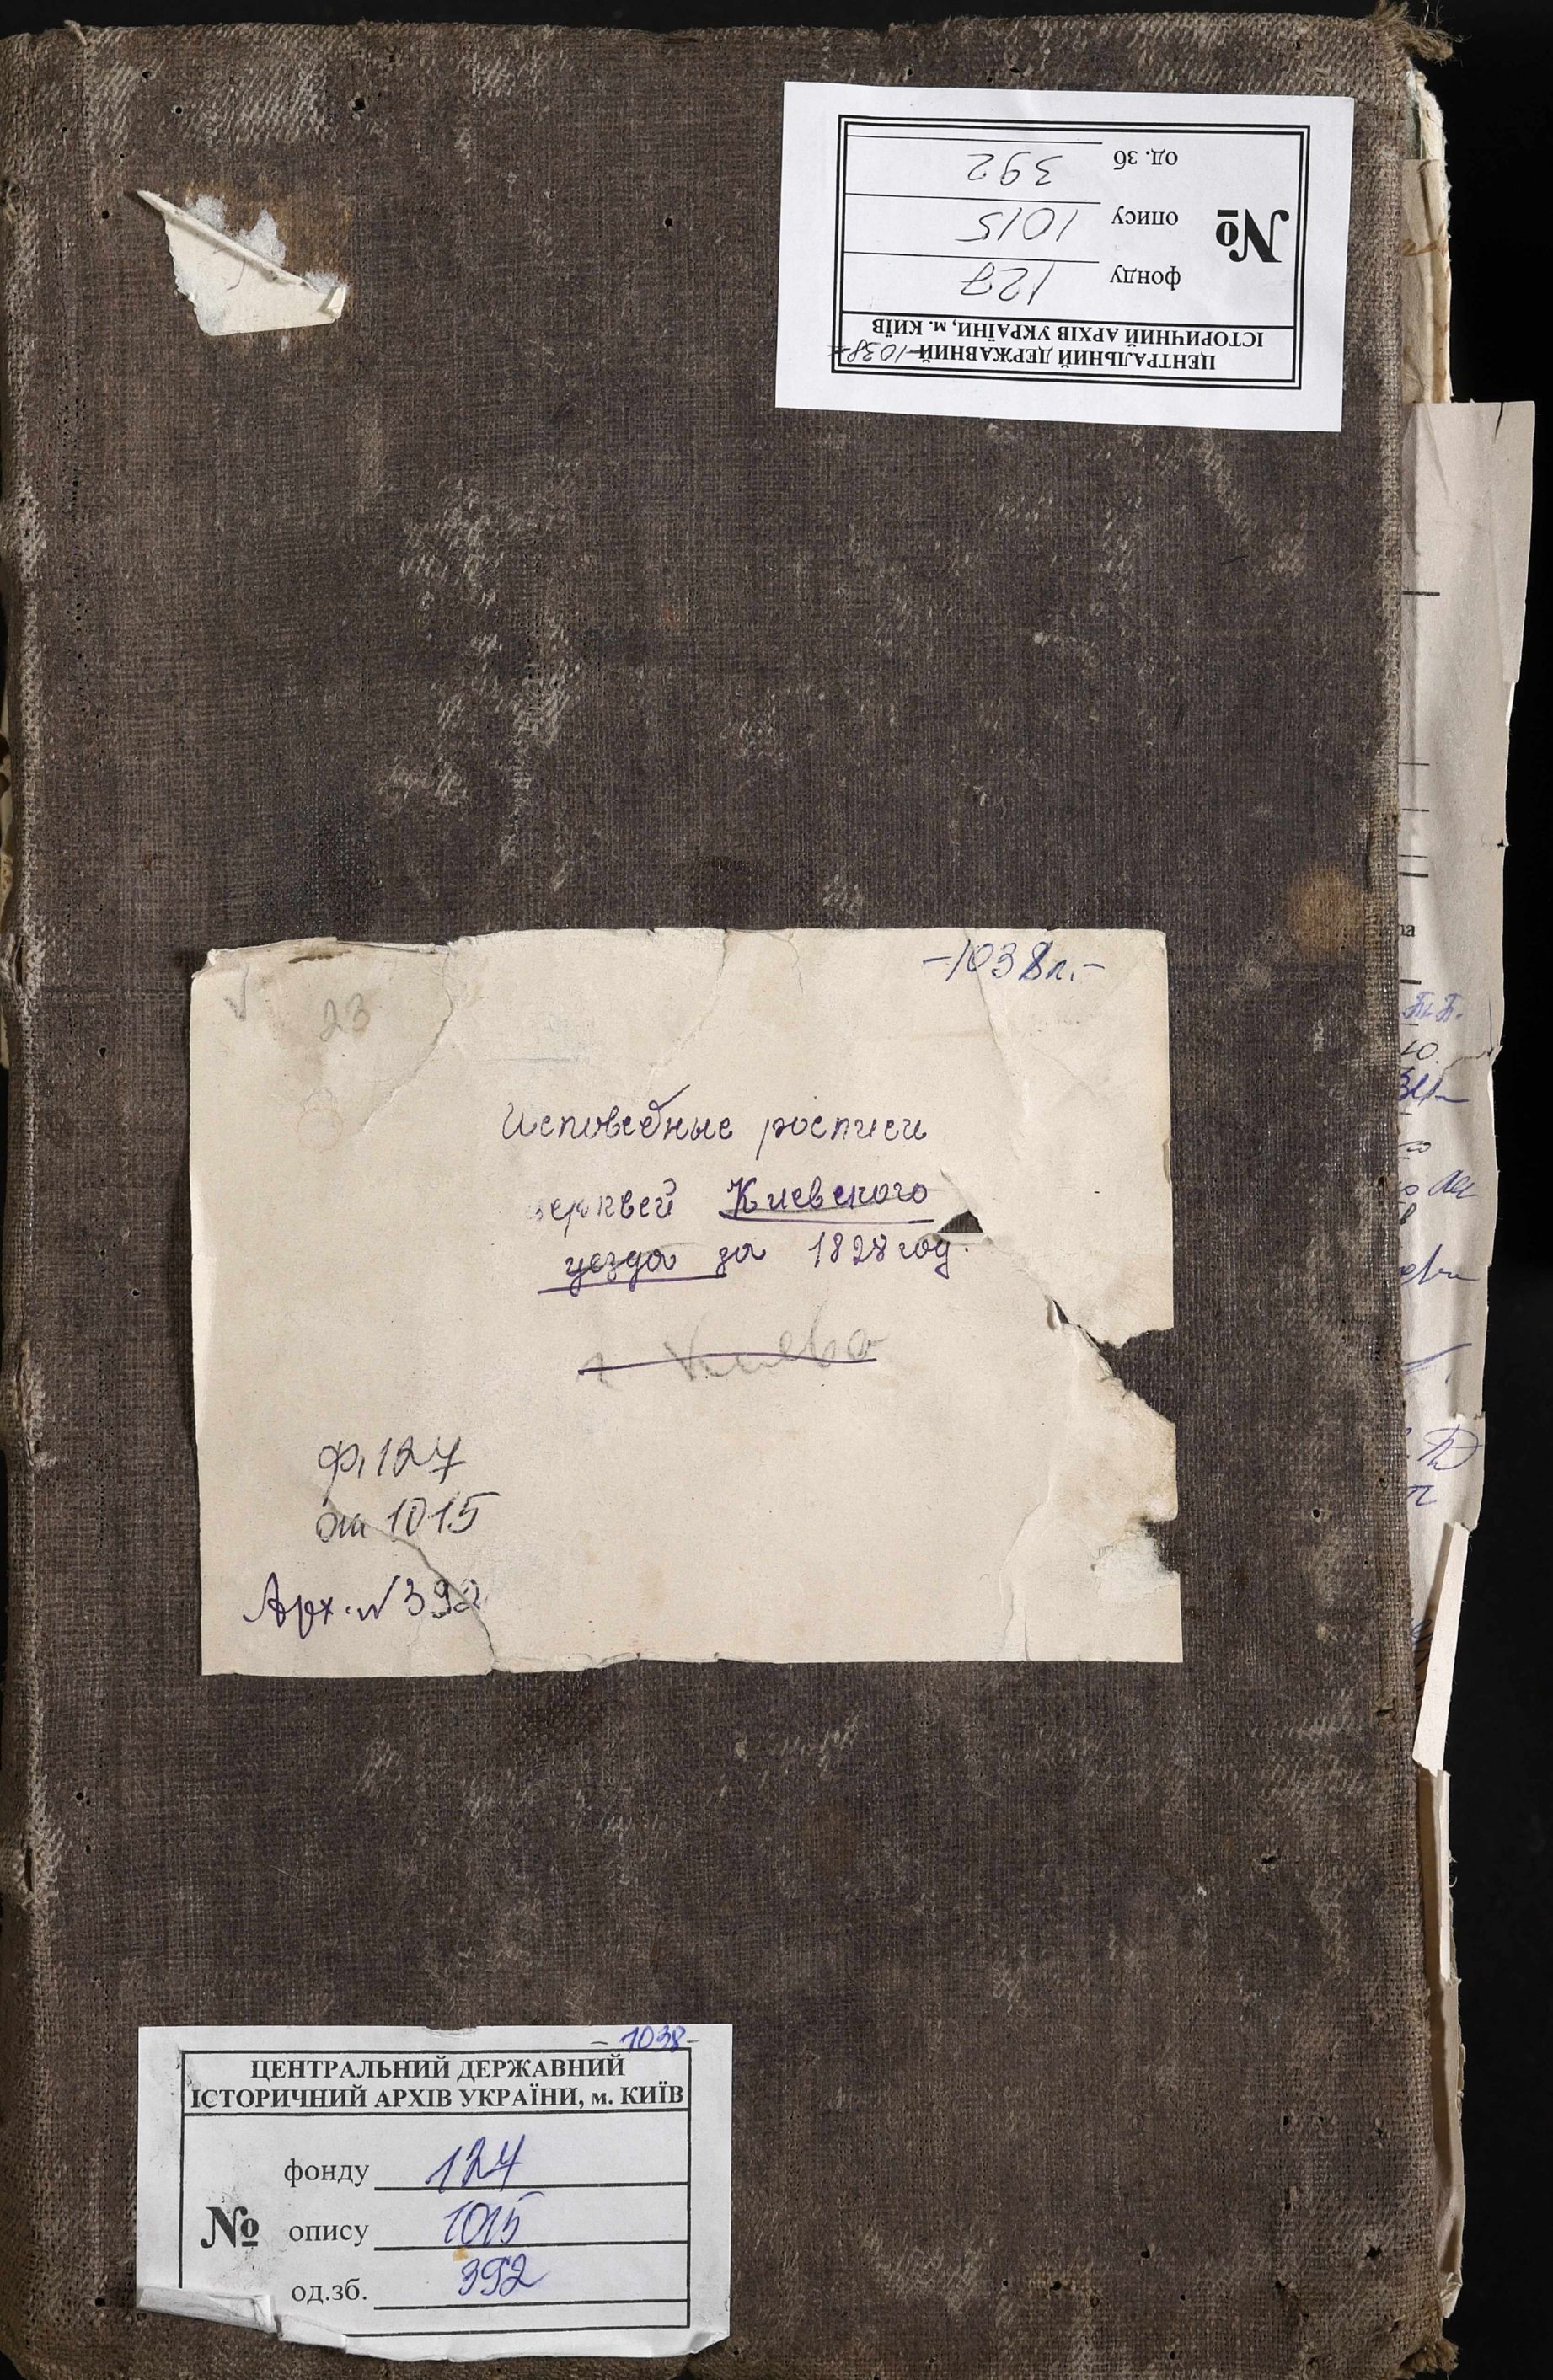 ЦЕНТРАЛЬНИЙ ДЕРЖАВНИЙ -1038-
ІСТОРИЧНИЙ АРХІВ УКРАЇНИ, м. КИЇВ
№
фонду 127
опису 1015
од. зб 392
-1038л.-
23
Исповедные росписи
церквей Киевского
уезда за 1828 год.
г Киева
ф. 127
оп 1015
Арх. №392
-1038-
ЦЕНТРАЛЬНИЙ ДЕРЖАВНИЙ
ІСТОРИЧНИЙ АРХІВ УКРАЇНИ, м. КИЇВ
№
фонду 127
опису 1015
од.зб. 392